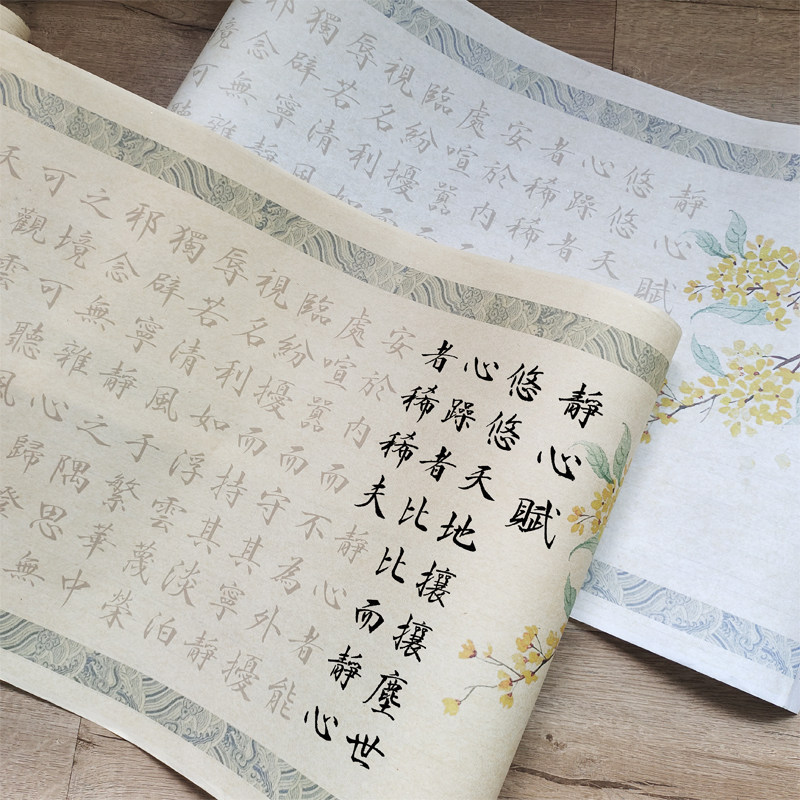 靜心賦
悠悠天地攘攘塵世
心躁者比比而靜心
者稀稀夫靜心者能
安於內而不為外擾
處喧囂而守其寧靜
臨紛擾而持其淡泊
視名利如浮雲蔑榮
辱若清風于繁華中
獨辟寧靜之隅思無
邪念無雜心歸澄
之境可聽風
可觀雲
天
靜心賦
悠悠天
心躁者
者稀稀
安於內
處喧囂
臨紛擾
視名利
辱若清風
獨辟寧靜
邪念無雜
境可聽